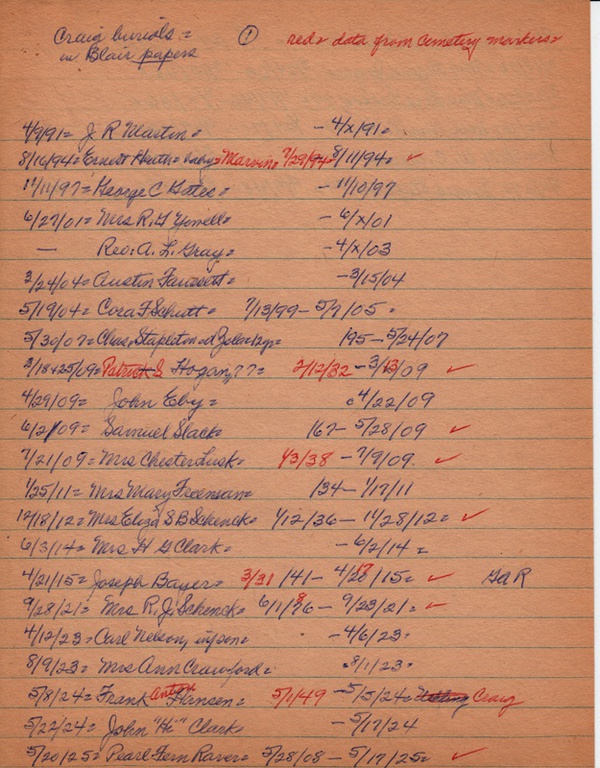 Craig burials = ① red = data from Cemetery markers =
in Blair papers
4/9/91 = J. R Mastin = - 4/x/91 =
8/16/94 = Ernest Heath = baby = Marvin = 7/29/94 = 8/11/94 = ✓
11/11/97 = George C Gates = - 11/10/97
6/27/01 = Mrs R. G Yowell = - 6/x/01
— Rev: A. L. Gray = - 4/x/03
3/24/04 = Austin Fawcett = - 3/15/04
5/19/04 = Cora F Schutt = 7/13/99 - 5/9/05 =
5/30/07 = Chas. Stapleton = d 195 - 5/24/07
3/18+25/09 = Patrick S Hogan, ?? = 2/12/32 - 3/13/09 ✓
4/29/09 = John Eby = 4/22/09
6/2/09 = Samuel Slack = 167 - 5/28/09 ✓
7/21/09 = Mrs Chester Lusk = 1/3/38 - 7/9/09. ✓
1/25/11 = Mrs Mary Freeman = 134 - 1/17/11
12/18/12 = Mrs Eliza S B Schenck = 1/12/36 - 11/28/12 = ✓
6/3/14 = Mrs H G Clark = - 6/2/14 =
4/21/15 = Joseph Bayer = 3/31/41 - 4/17/15 = ✓ GaR
9/28/21 = Mrs R. J. Schenck = 6/1/86 - 9/23/21 = ✓
4/12/23 = Carl Nelson, = - 4/6/23 =
8/9/23 = Mrs Ann Crawford = 8/1/23 =
5/8/24 = Frank Anton Hansen = 5/1/49 - 5/5/24 = Craig
5/22/24 = John "Hi" Clark = - 5/17/24
5/20/25 = Pearl Fern Raver = 5/28/08 - 5/17/25 = ✓